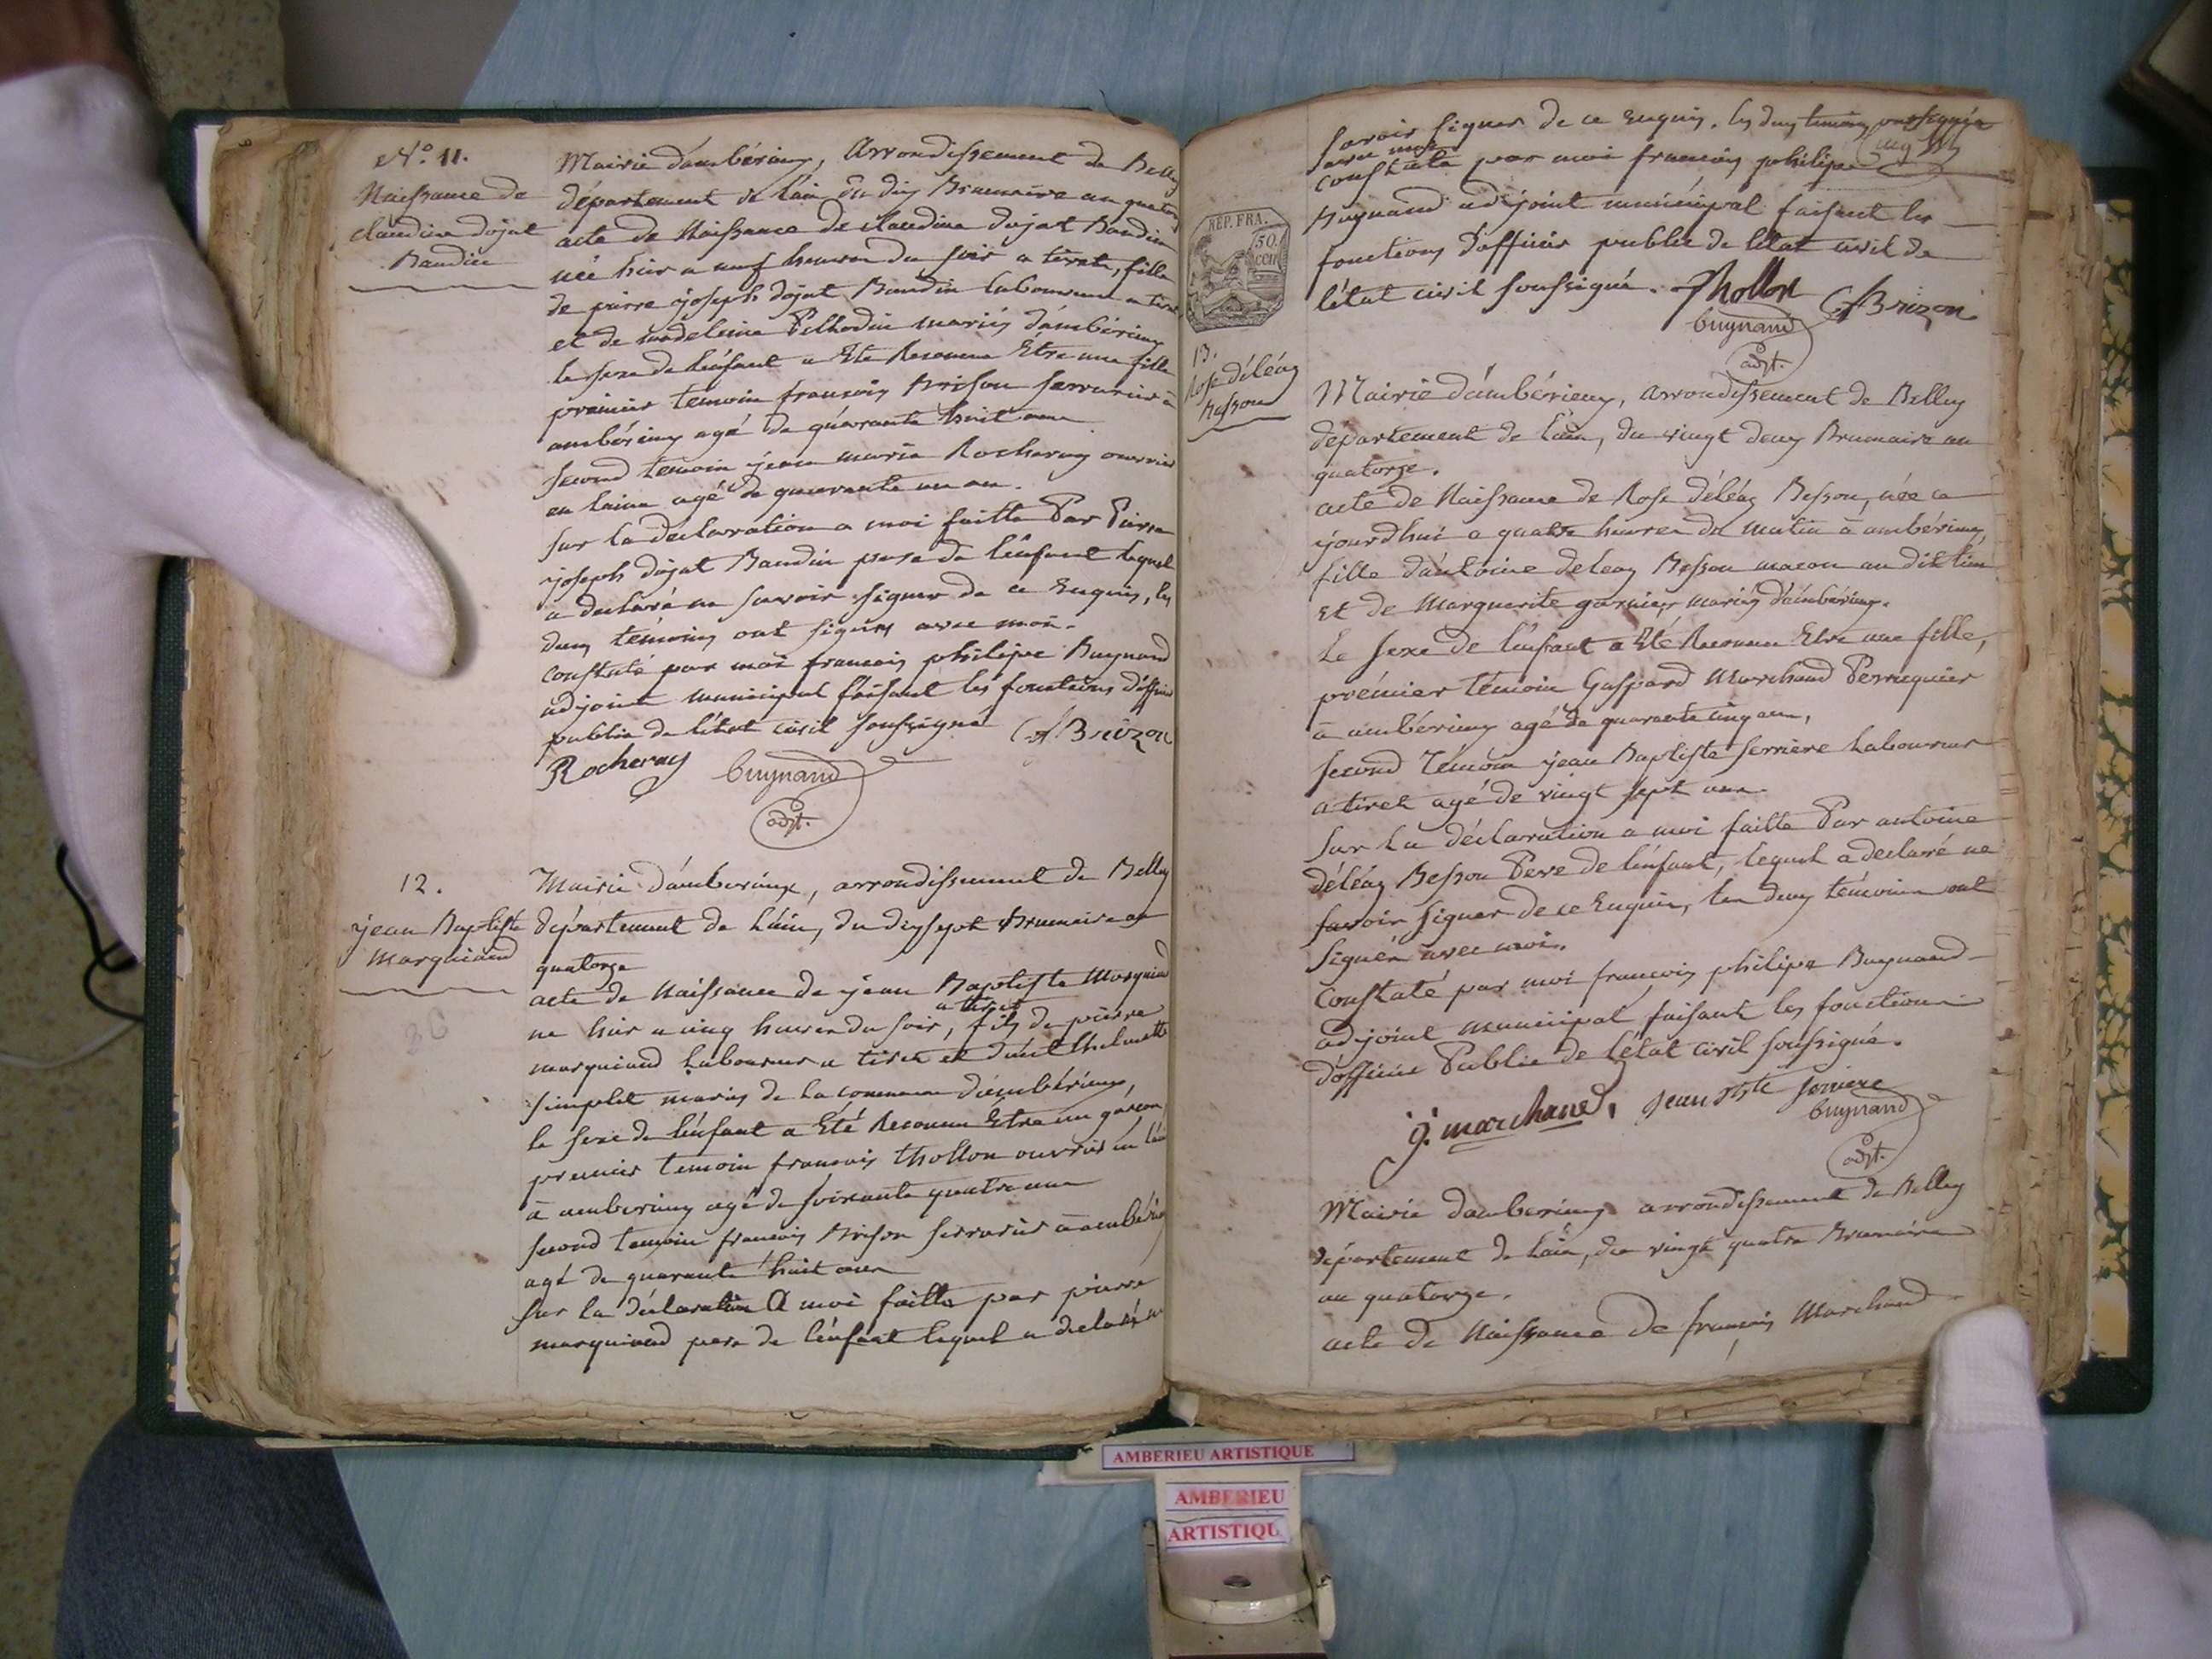 N.° 11.
Naissance de
claudine dojat
Baudin
Mairie d'ambérieux, Arrondissement de Belley
département de l'ain du dix Brumaire an quatorze
acte de Naissance de claudine dojat Baudin
née hier a neuf heures du soir a tiret, fille
de pierre joseph dojat Baudin laboureur a tiret
et de madeleine Pelhodin mariés d'ambérieux
le sexe de l'enfant a Eté Reconnu Etre une fille
premier temoin françois Brison serrurier à
ambérieux agé de quarante huit ans
second temoin jean marie Rocheray ouvrier
en laine agé de quarante un an.
sur la déclaration a moi faitte Par Pierre
joseph dojat Baudin pere de l'enfant lequel
a declaré ne savoir signer de ce Enquis, les
deux témoins ont signés avec moi.
constaté par moi francois philipe Buynand
adjoint municipal faisant les fonctions d'officier
public de l'état civil soussigné
Brizon
Rocheray buynand
adjt.
12.
jean Baptiste
marquiand
Mairie d'amberieux, arrondissement de Belley
département de L'ain, du dixsept Brumaire an
quatorze
acte de Naissance de jean Baptiste Marquiand
a tiret
ne hier a cinq heures du soir, fils de pierre
marquiand Laboureur a tiret et Thelmette
simplet mariés de la commune d'ambérieux,
le sexe de l'enfant a Eté Reconnu Etre un garcon
premier temoin francois thollon ouvrier en
à amberieux agé de soixante quatre ans
second temoin francois Brison serrurier à ambérieux
agé de quarante huit ans
sur la déclaration A moi faitte par pierre
marquiand pere de l'enfant lequel a declaré ne
savoir signer de ce enquis. les deux temoins
avec moi
constaté par moi francois philipe
Buynand adjoint municipal faisant les
fonctions d'officier public de l'état civil de
l'état civil soussigné. Thollon Brizon
buynand
adjt.
REP. FRA.
50.
CEN
13.
Rose déléaz
Besson
Mairie d'ambérieux, arrondissement de Belley
département de l'ain, du vingt deux Brumaire an
quatorze.
acte de Naissance de Rose déléaz Besson, née ce
jourd'hui a quatre heures du matin à ambérieux,
fille d'antoine deleaz Besson macon au dit lieu
et de Marguerite garnier mariés d'ambérieux.
Le sexe de l'enfant a Eté Reconnu Etre une fille,
prémier témoin Gaspard Marchand Perruquier
à ambérieux agé de quarante cinq ans,
second Témoin jean Baptiste serriere Laboureur
a tiret agé de vingt sept ans.
sur La déclaration a moi faitte Par antoine
déléaz Besson Pere de l'enfant, lequel a declaré ne
savoir signer de ce Enquis, les deux témoins ont
signés avec moi.
Constaté par moi françois philipe Buynand
adjoint municipal faisant les fonctions
d'officier Public de l'état civil soussigné.
g. marchand, jean Bste serriere
buynand
adjt.
Mairie d'amberieux arrondissement de Belley
département de l'ain, du vingt quatre Brumaire
an quatorze.
acte de Naissance de françois Marchand
AMBERIEU ARTISTIQUE
AMBERIEU
ARTISTIQU